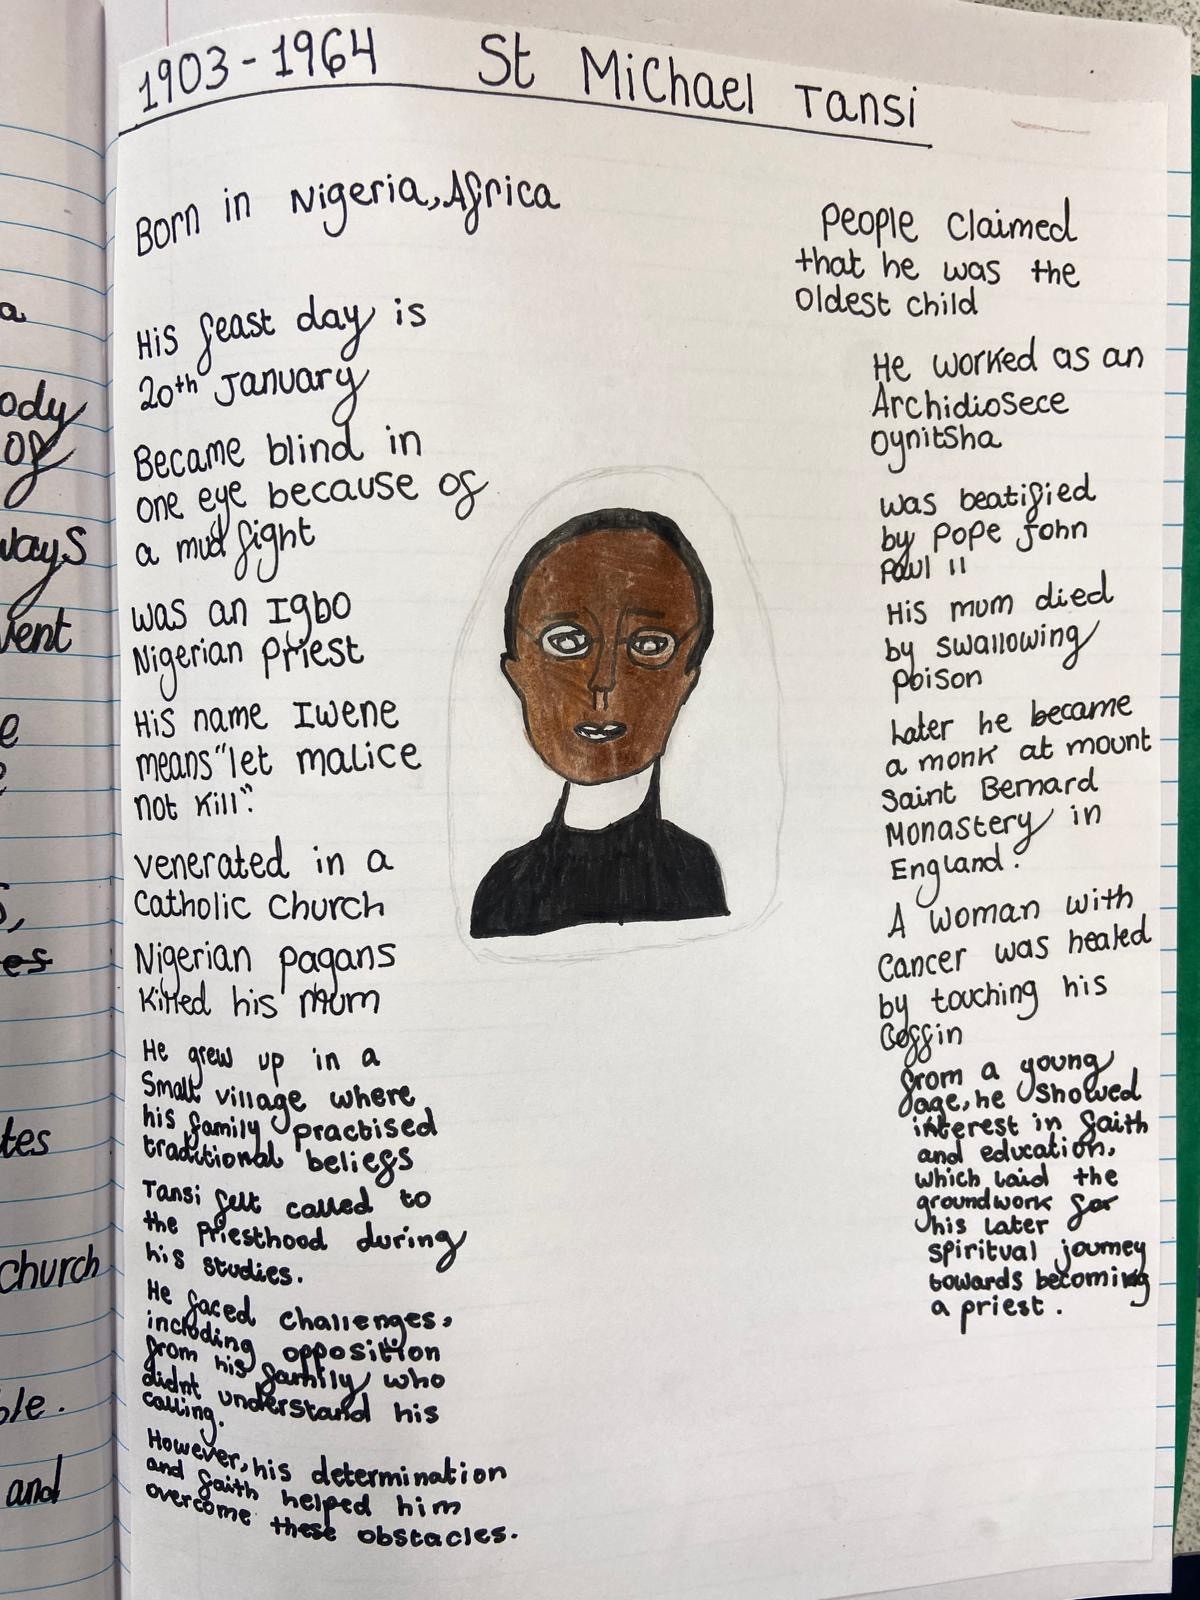 1903-1964 St Michael Tansi
Born in Nigeria, Africa
His feast day is
20th January
Became blind in
one eye because of
a mud fight
was an Igbo
Nigerian Priest
His name Iwene
means "let malice
not kill".
venerated in a
Catholic Church
Nigerian pagans
killed his mum
He grew up in a
small village where
his family practised
traditional beliefs
Tansi felt called to
the Priesthood during
his studies.
He faced challenges,
including opposition
from his family who
didnt understand his
calling.
However, his determination
and faith helped him
overcome these obstacles.
People claimed
that he was the
oldest child
He worked as an
Archidiosece
Oynitsha
was beatified
by Pope John
Paul II
His mum died
by swallowing
poison
Later he became
a monk at mount
Saint Bernard
Monastery in
England.
A woman with
Cancer was healed
by touching his
Coffin
from a young
age, he showed
interest in faith
and education,
which laid the
groundwork for
his later
spiritual journey
towards becoming
a priest.
a
ody
of
ways
vent
e
s,
es
tes
church
ble.
and